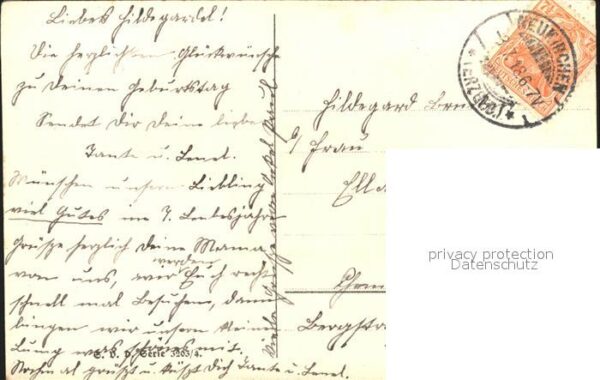 Liebes Hildegardel!
Die herzlichsten Glückwünsche
zu Deinem Geburtstag
Sendet Dir Deine liebe
Tante u. Lenel.
Wünschen unserm Liebling
viel Gutes im 7. Lebensjahre
Grüsse herzlich Deine Mama
von uns, wir werden Euch recht
schnell mal Besuchen, dann
bringen wir unsern Kleinen
mit.
Nochm al grüsst u. küsst Dich Tante u. Lenel.
Viele Grüsse von Onkel Paul
S. V. D. Serie 3263/4.
Hildegard
b/ Frau
Ella
Chem
Bergstr
NEUKIRCHEN
(ERZGEB.)
7½
privacy protection
Datenschutz